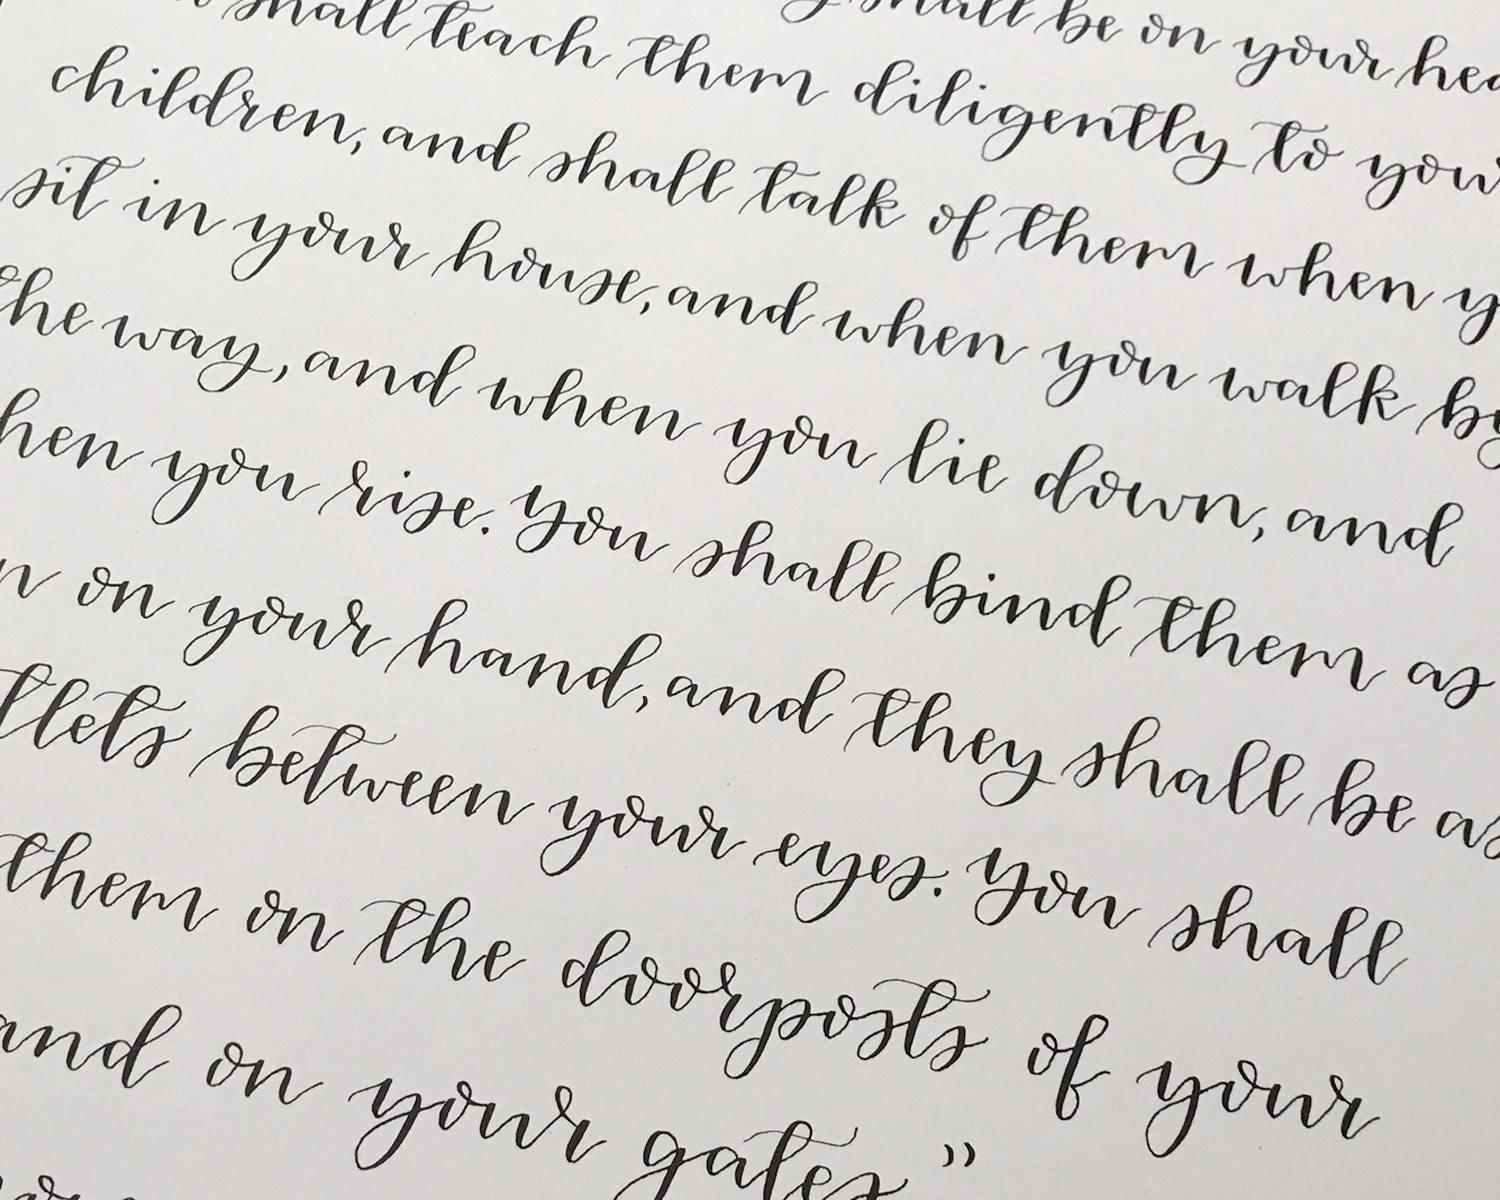 shall be on your hea
shall teach them diligently to your
children, and shall talk of them when y
sit in your house, and when you walk by
the way, and when you lie down, and
hen you rise. You shall bind them as
n on your hand, and they shall be as
tlets between your eyes. You shall
them on the doorposts of your
and on your gates”